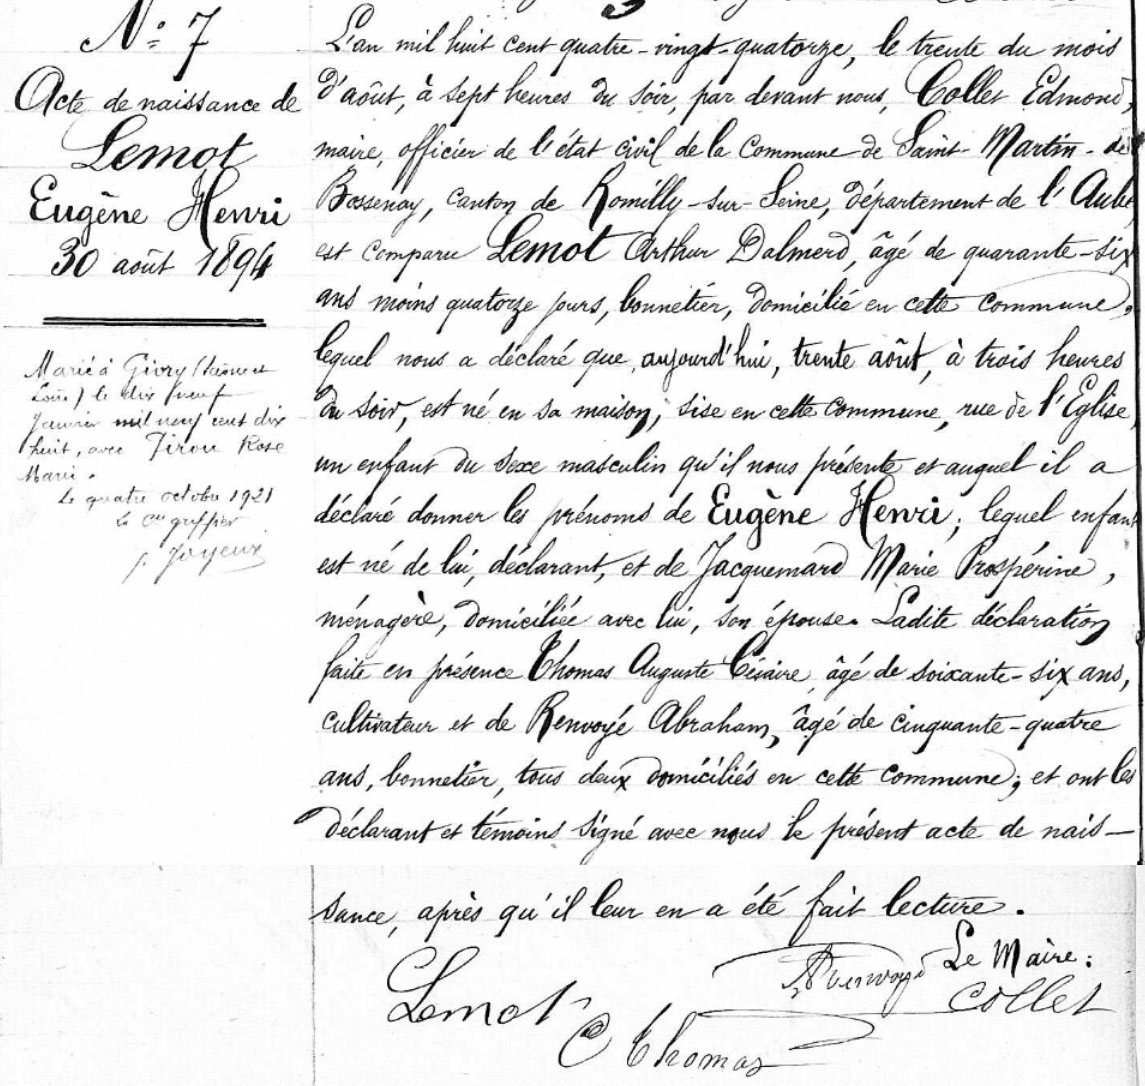 N° 7
Acte de naissance de
Lemot
Eugène Henri
30 août 1894
Marié à Givry (Saône et
Loire) le dix neuf
Janvier mil neuf cent dix
huit, avec Rose
Marie.
Le quatre octobre 1921
Le Cis greffier
Joyeux
L'an mil huit cent quatre-vingt-quatorze, le trente du mois
d'août, à sept heures du soir, par devant nous, Collet Edmond,
maire, officier de l'état civil de la commune de Saint-Martin-de
Bossenay, canton de Romilly-sur-Seine, département de l'Aube,
est comparu Lemot Arthur Dalmerd, âgé de quarante-six
ans moins quatorze jours, bonnetier, domicilié en cette commune,
lequel nous a déclaré que aujourd'hui, trente août, à trois heures
du soir, est né en sa maison, sise en cette commune, rue de l'Eglise,
un enfant du sexe masculin qu'il nous présente et auquel il a
déclaré donner les prénoms de Eugène Henri; lequel enfant
est né de lui, déclarant, et de Jacquemard Marie Prospérine,
ménagère, domiciliée avec lui, son épouse. Ladite déclaration
faite en présence Thomas Auguste Césaire, âgé de soixante-six ans,
cultivateur et de Renvoyé Abraham, âgé de cinquante-quatre
ans, bonnetier, tous deux domiciliés en cette commune; et ont les
déclarant et témoins signé avec nous le présent acte de nais-
sance, après qu'il leur en a été fait lecture.
Le Maire:
Lemot
A Renvoyé
Collet
C Thomas